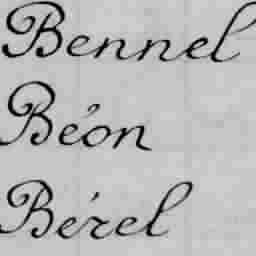 Bennel
Béon
Bérel